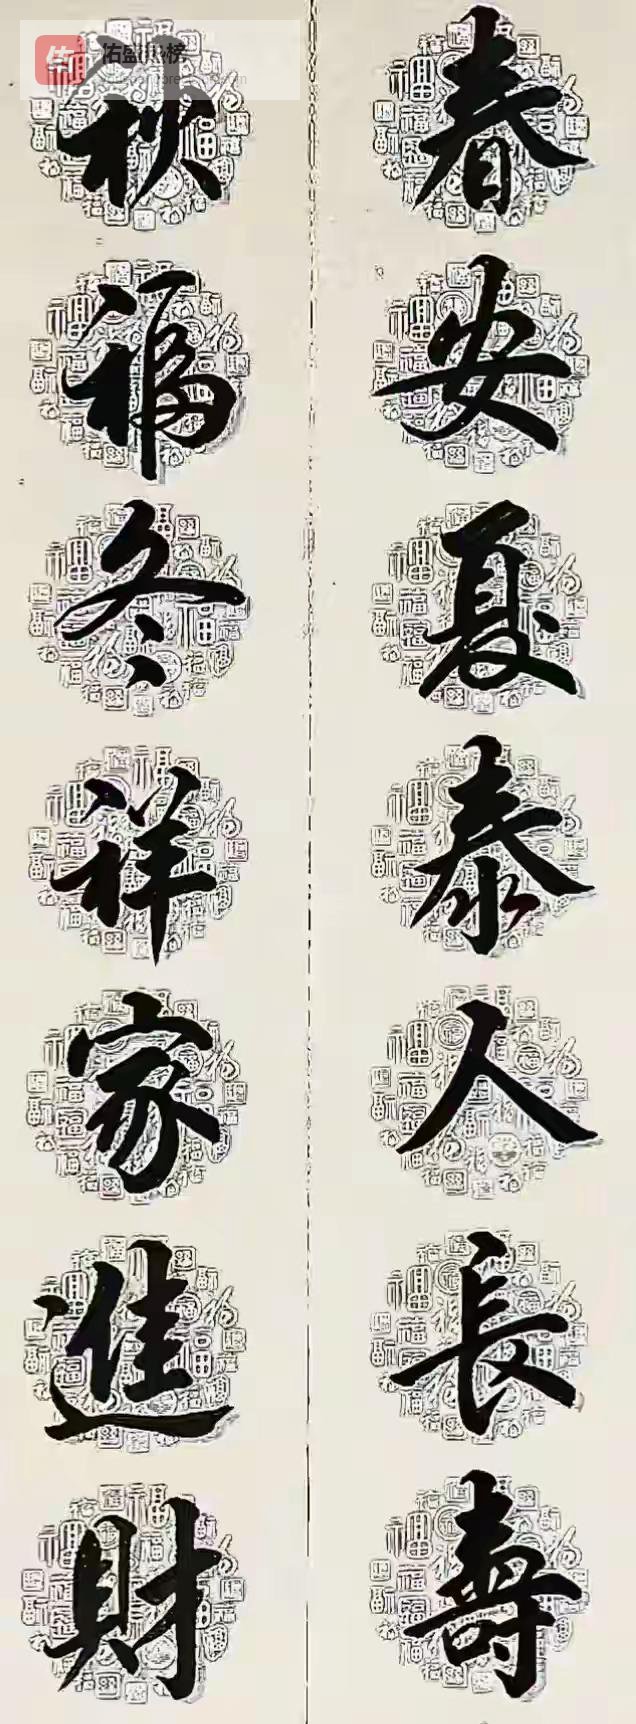 春安夏泰人長壽
秋福冬祥家進財